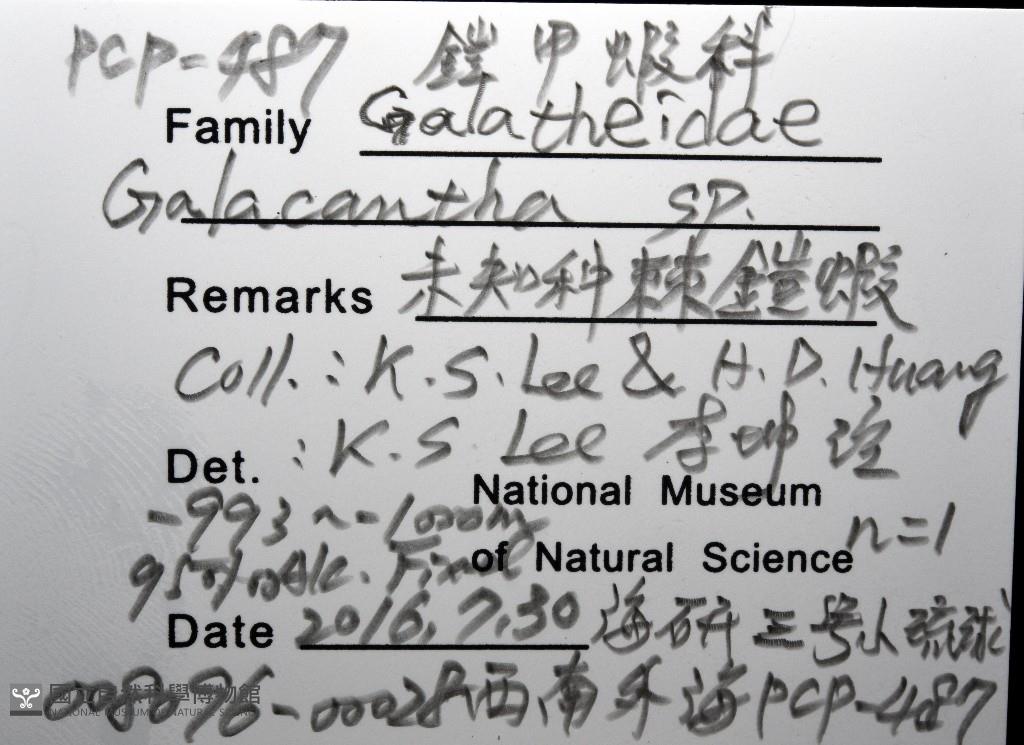 PCP-487 鎧甲蝦科
Family Galatheidae
Galacantha sp.
Remarks 未知科棘鎧蝦
Coll.: K.S. Lee & H.D. Huang
Det. : K.S Lee 李坤瑄
National Museum
-993~-1000m n=1
of Natural Science
95% Alc. Fixed
Date 2016.7.30 海研三號小琉球
-00028西南外海PCP-487
國立自然科學博物館
NATIONAL MUSEUM OF NATURAL SCIENCE